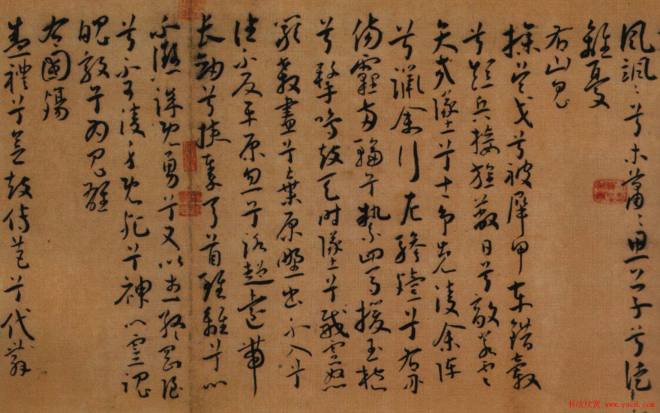 風颯〻兮木蕭〻思公子兮徒
離憂
右山鬼
操吳戈兮被犀甲車錯轂
兮短兵接旌蔽日兮敵若雲
矢交墜兮士爭先凌余陣
兮躐余行左驂殪兮右刃
傷霾兩輪兮縶四馬援玉枹
兮擊鳴鼓天時墜兮威靈怒
嚴殺盡兮棄原野出不入兮
往不反平原忽兮路超遠帶
長劍兮挾秦弓首雖離兮心
不懲誠既勇兮又以武終剛強
兮不可凌身既死兮神以靈魂
魄毅兮為鬼雄
右國殤
盛禮兮會鼓傳芭兮代舞